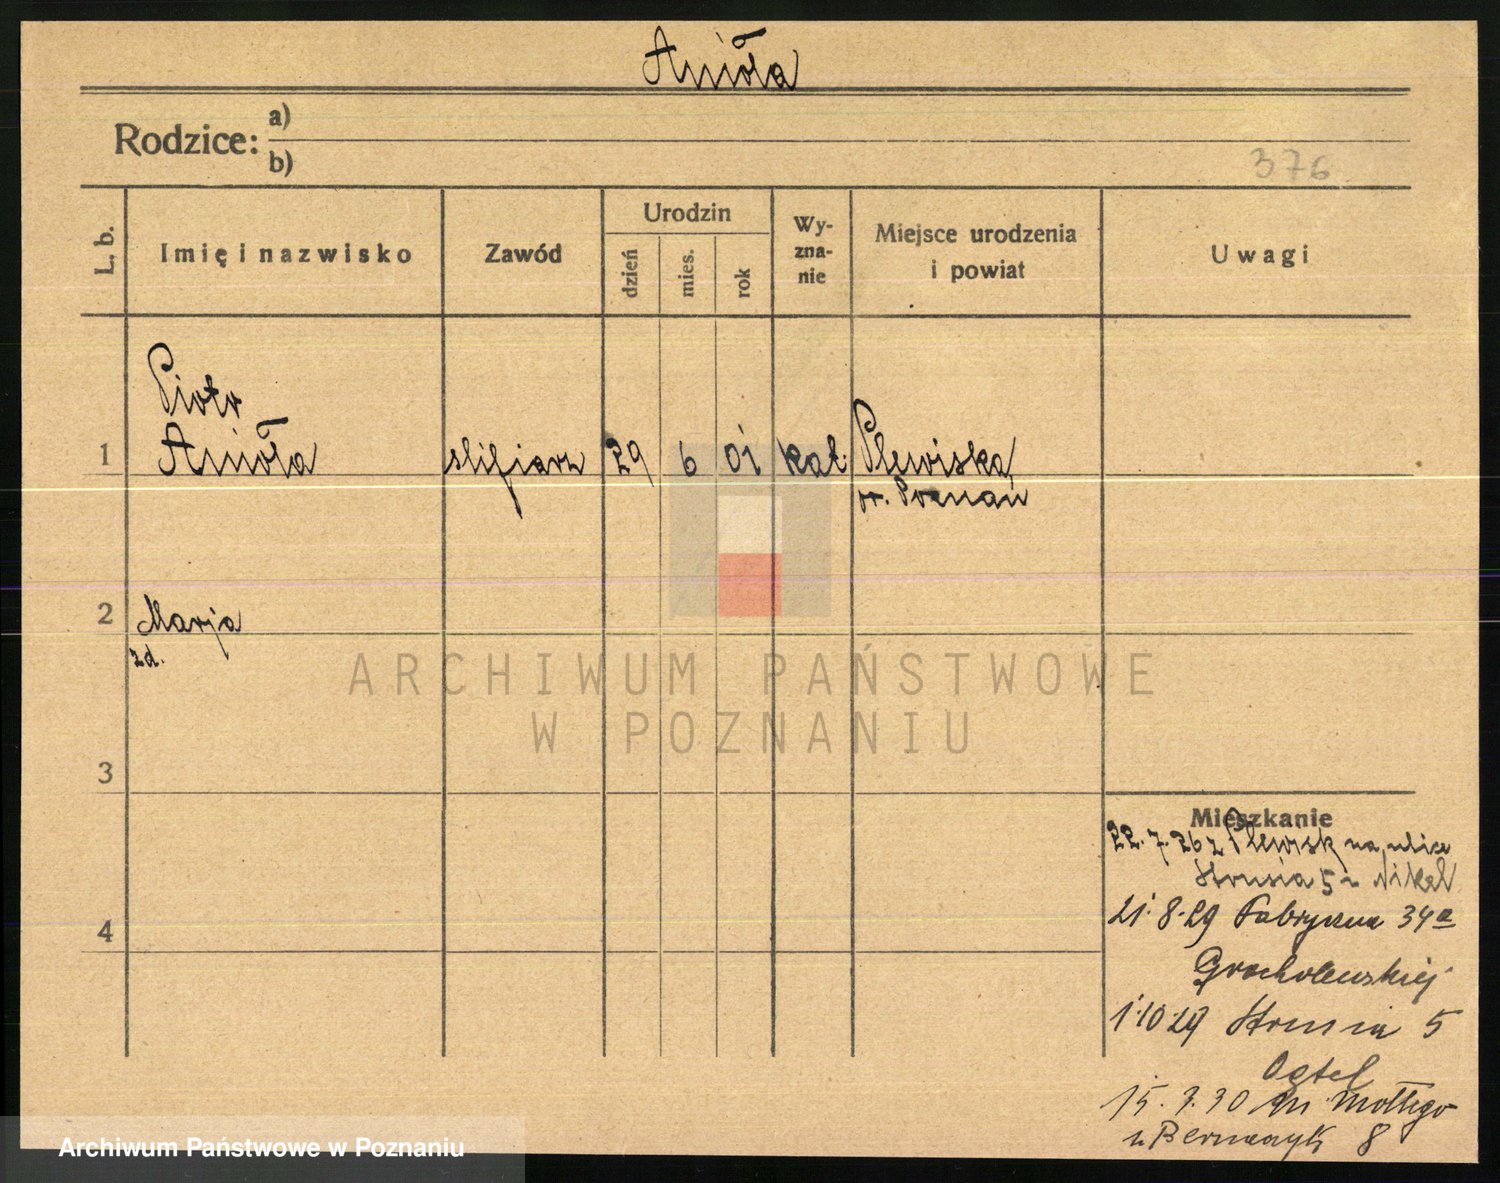 Anioła
Rodzice: a)
b)
376
L. b.
Imię i nazwisko
Zawód
Urodzin
dzień
mies.
rok
Wy-
zna-
nie
Miejsce urodzenia
i powiat
Uwagi
Piotr
1 Anioła slifiarz 29 6 01 kat. Plewiska
pr. Poznań
2 Marja
zd.
ARCHIWUM PAŃSTWOWE
W POZNANIU
3
Mieszkanie
22.7.26 z Plewisk na ulice
Strusia 5 u Nikel
4
21.8.29 Fabryczna 34a
Grocholewskiej
1.10 29 Strusia 5
15. 3. 30 Mottego
u 8
Archiwum Państwowe w Poznaniu